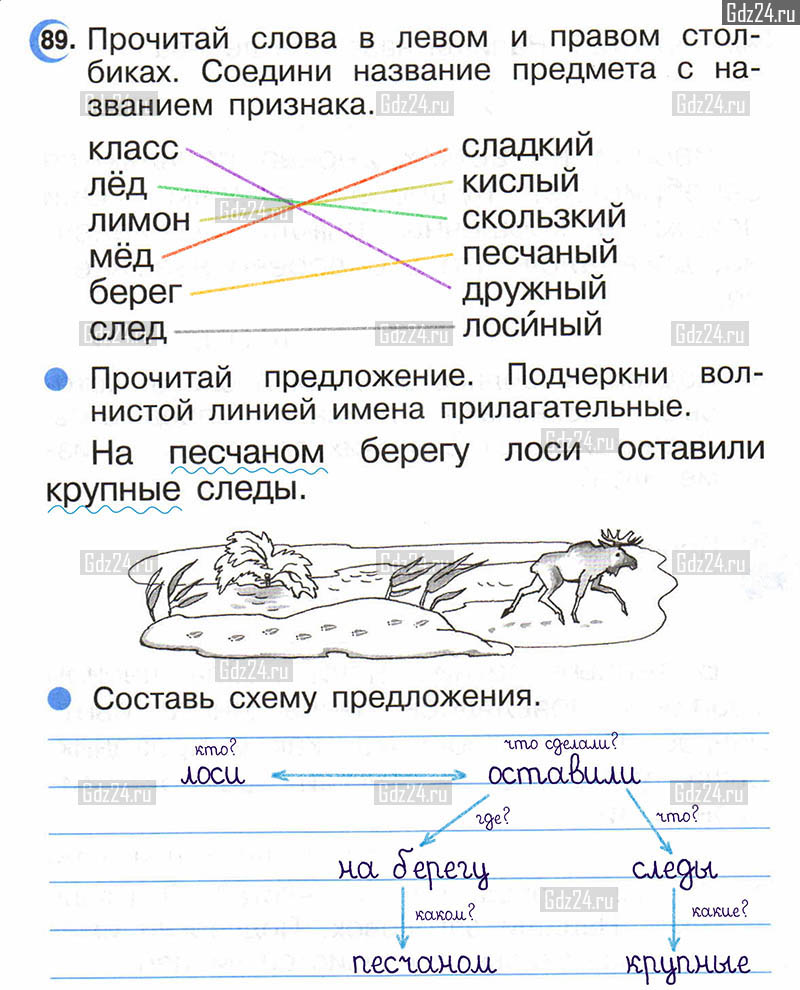 Gdz24.ru
89. Прочитай слова в левом и правом стол-
биках. Соедини название предмета с на-
званием признака.
Gdz24.ru Gdz24.ru Gdz24.ru
класс сладкий
лёд кислый
лимон скользкий
Gdz24.ru Gdz24.ru
мёд песчаный
берег дружный
след лоси́ный
Gdz24.ru Gdz24.ru Gdz24.ru
Прочитай предложение. Подчеркни вол-
нистой линией имена прилагательные.
Gdz24.ru
На песчаном берегу лоси оставили
крупные следы.
Gdz24.ru Gdz24.ru Gdz24.ru
Gdz24.ru
Составь схему предложения.
кто? что сделали?
лоси оставили
Gdz24.ru Gdz24.ru Gdz24.ru
где? что?
на берегу следы
Gdz24.ru Gdz24.ru
каком? какие?
песчаном крупные